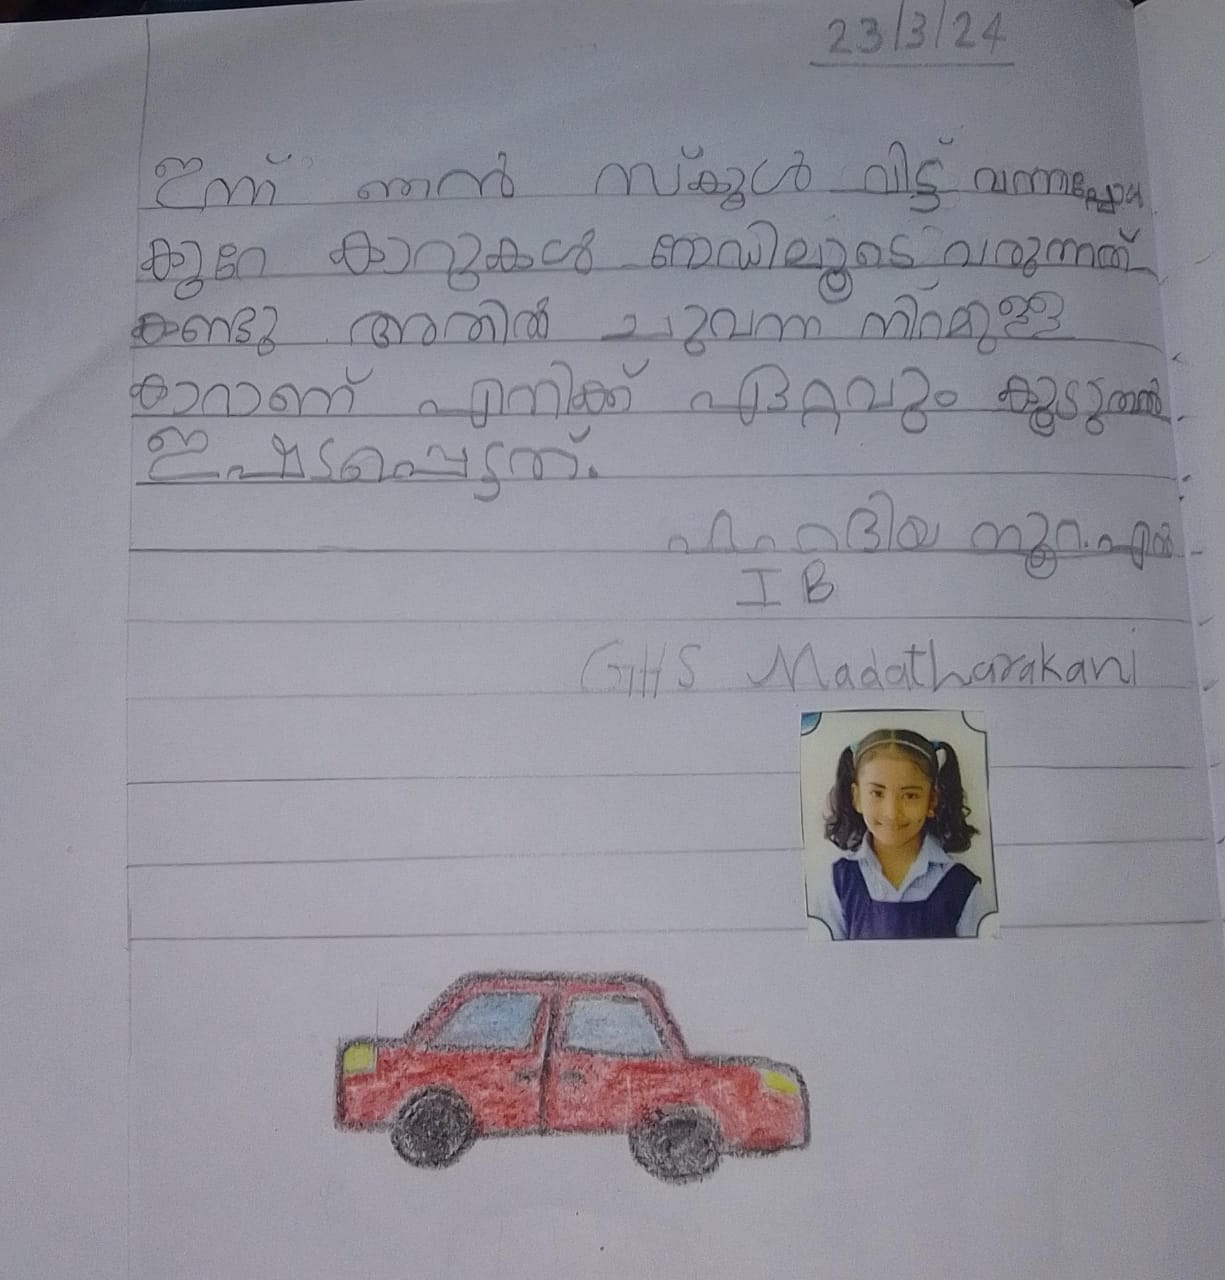 23/3/24
ഇന്ന് ഞാൻ സ്കൂൾ വിട്ട് വന്നപ്പോൾ
കുറേ കാറുകൾ റോഡിലൂടെ വരുന്നത്
കണ്ടു അതിൽ ചുവന്ന നിറമുള്ള
കാറാണ് എനിക്ക് ഏറ്റവും കൂടുതൽ
ഇഷ്ടപ്പെട്ടത്.
നൂറ.എൻ
I B
GHS Madatharakani